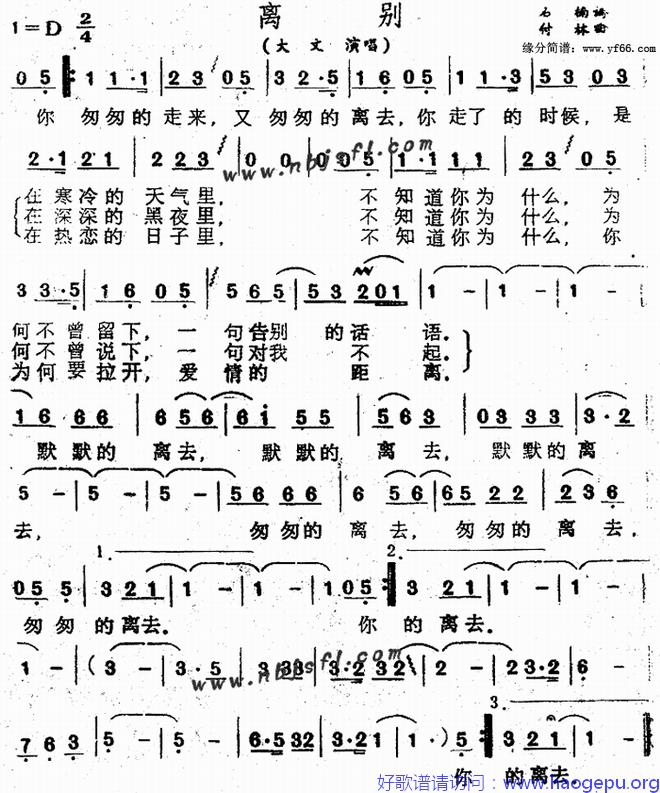 离 别
1=D 2/4
(大 文 演唱)
石 楠 词
付 林 曲
缘分简谱: www.yf66.com
0 5 1 1 1·1 2 2 3 0 5 3 2·5 1 6 0 5 1 1 1·3 5 3 0 3
你 匆匆的走来, 又 匆匆的离去, 你走了的时候, 是
2·1 2 1 2 2 3 0 0 0 0 5 1·1 1 1 3 2 3 0 5
www.nbjsfl.com
在寒冷的 天气里, 不知道你为 什么, 为
在深深的 黑夜里, 不知道你为 什么, 为
在热恋的 日子里, 不知道你为 什么, 你
3 3·5 1 6 0 5 5 6 5 5 3 2 0 1 1 - 1 - 1·5
何不曾留下, 一 句告别 的话 语.
何不曾说下, 一 句对我 不 起.
为何要拉开, 爱 情的 距 离.
1 6 6 6 6 5 6 6 6 i 5 5 5 6 3 0 3 3 3 3·2
默默的 离去, 默默的 离去, 默默的离
5 - 5 - 5 - 5 6 6 6 6 5 6 6 5 2 2 2 3 6
去, 匆匆的 离去, 匆匆的 离去,
1. 2.
0 5 5 3 2 1 1 - 1 - 1 0 5 3 2 1 1 - 1 -
匆匆 的离去. 你 的 离去.
1 - (3 - 3·5 3 3 3 3·2 3 2 2 - 2 3·2 6 -
www.nbjsfl.com
3.
7 6 3 5 - 5 - 6·5 3 2 3·2 1 1 - ) 5 3 2 1 1 -
你 的离去.
好歌谱请访问：www.haogepu.org